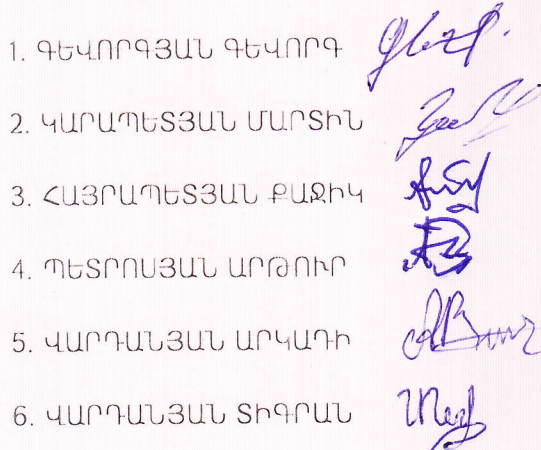 1. ԳԵՎՈՐԳՅԱՆ ԳԵՎՈՐԳ
2. ԿԱՐԱՊԵՏՅԱՆ ՄԱՐՏԻՆ
3. ՀԱՅՐԱՊԵՏՅԱՆ ՔԱՋԻԿ
4. ՊԵՏՐՈՍՅԱՆ ԱՐԹՈՒՐ
5. ՎԱՐԴԱՆՅԱՆ ԱՐԿԱԴԻ
6. ՎԱՐԴԱՆՅԱՆ ՏԻԳՐԱՆ